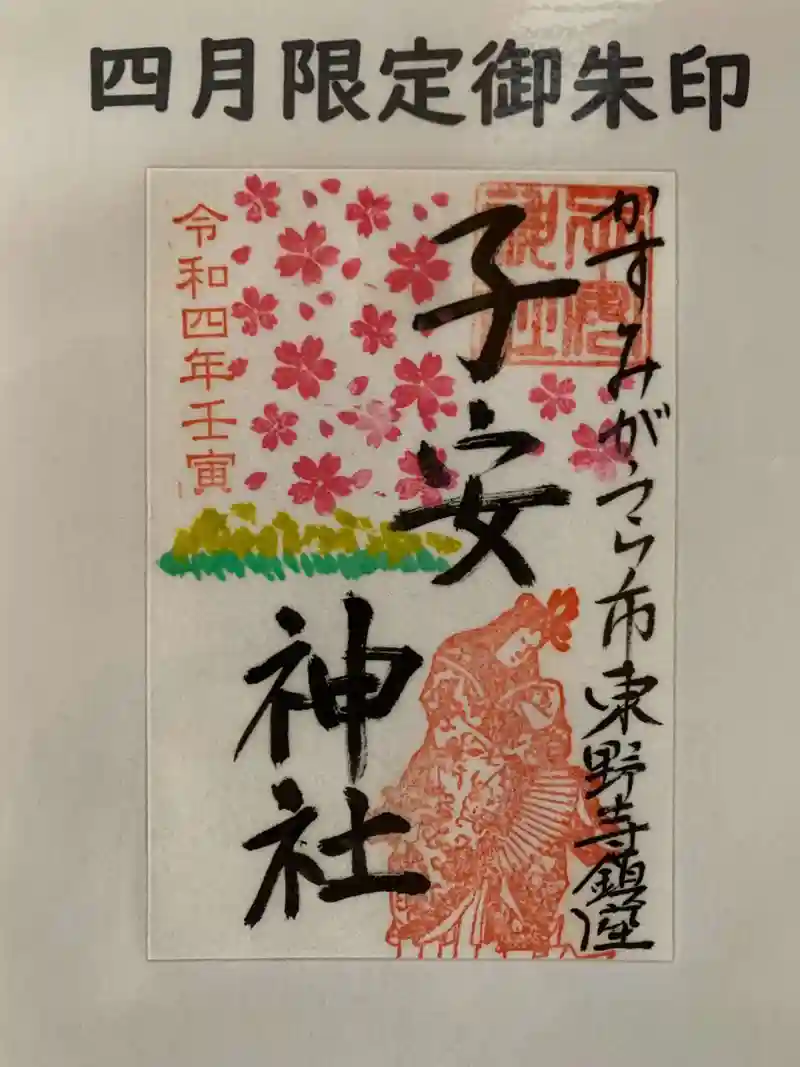 四月限定御朱印
かすみがうら市東野寺鎮座
子安
神社
令和四年壬寅